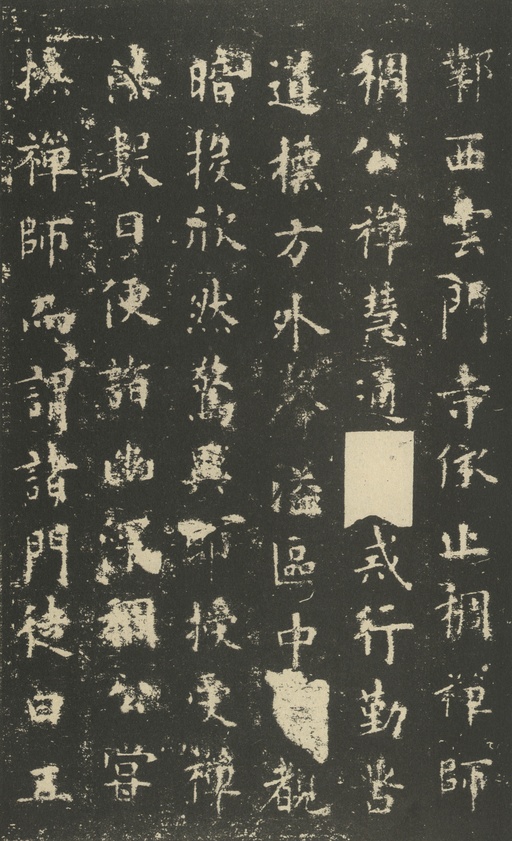 鄴西雲門寺依止稠禪師
稠公禪慧通戒行勤苦
道標方外溢區中
暗投欣然驚異即授受禪
法數日便詣幽深稠公嘗
撫禪師而謂諸門徒曰五